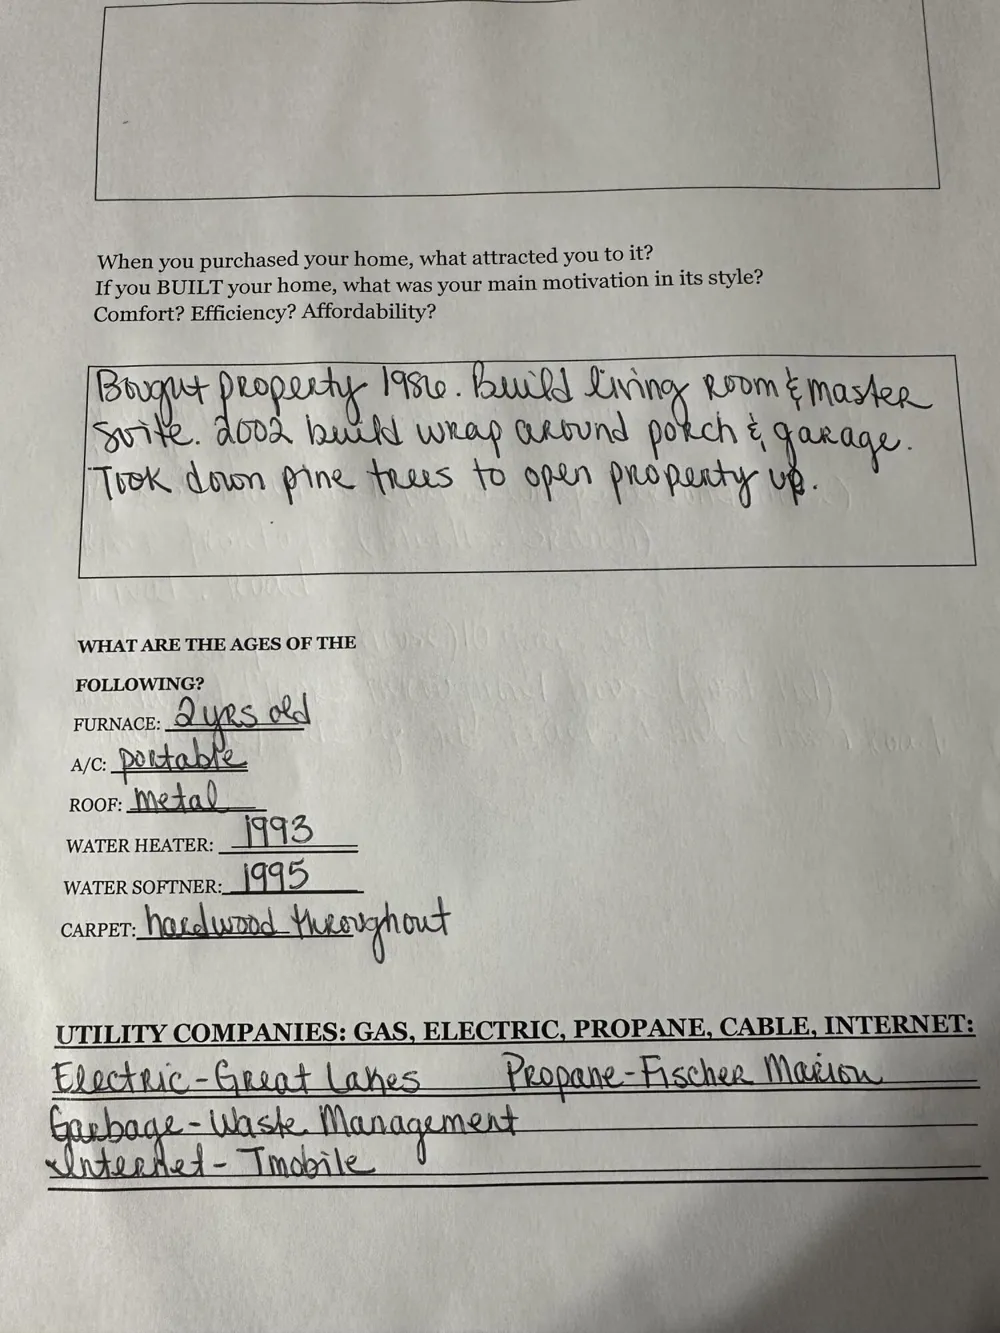 When you purchased your home, what attracted you to it?
If you BUILT your home, what was your main motivation in its style?
Comfort? Efficiency? Affordability?
Bought property 1986. Build living room & master
suite. 2002 build wrap around porch & garage.
Took down pine trees to open property up.
WHAT ARE THE AGES OF THE
FOLLOWING?
FURNACE: 2 yrs old
A/C: portable
ROOF: metal
WATER HEATER: 1993
WATER SOFTNER: 1995
CARPET: hardwood throughout
UTILITY COMPANIES: GAS, ELECTRIC, PROPANE, CABLE, INTERNET:
Electric - Great Lakes Propane - Fischer Marion
Garbage - Waste Management
Internet - Tmobile